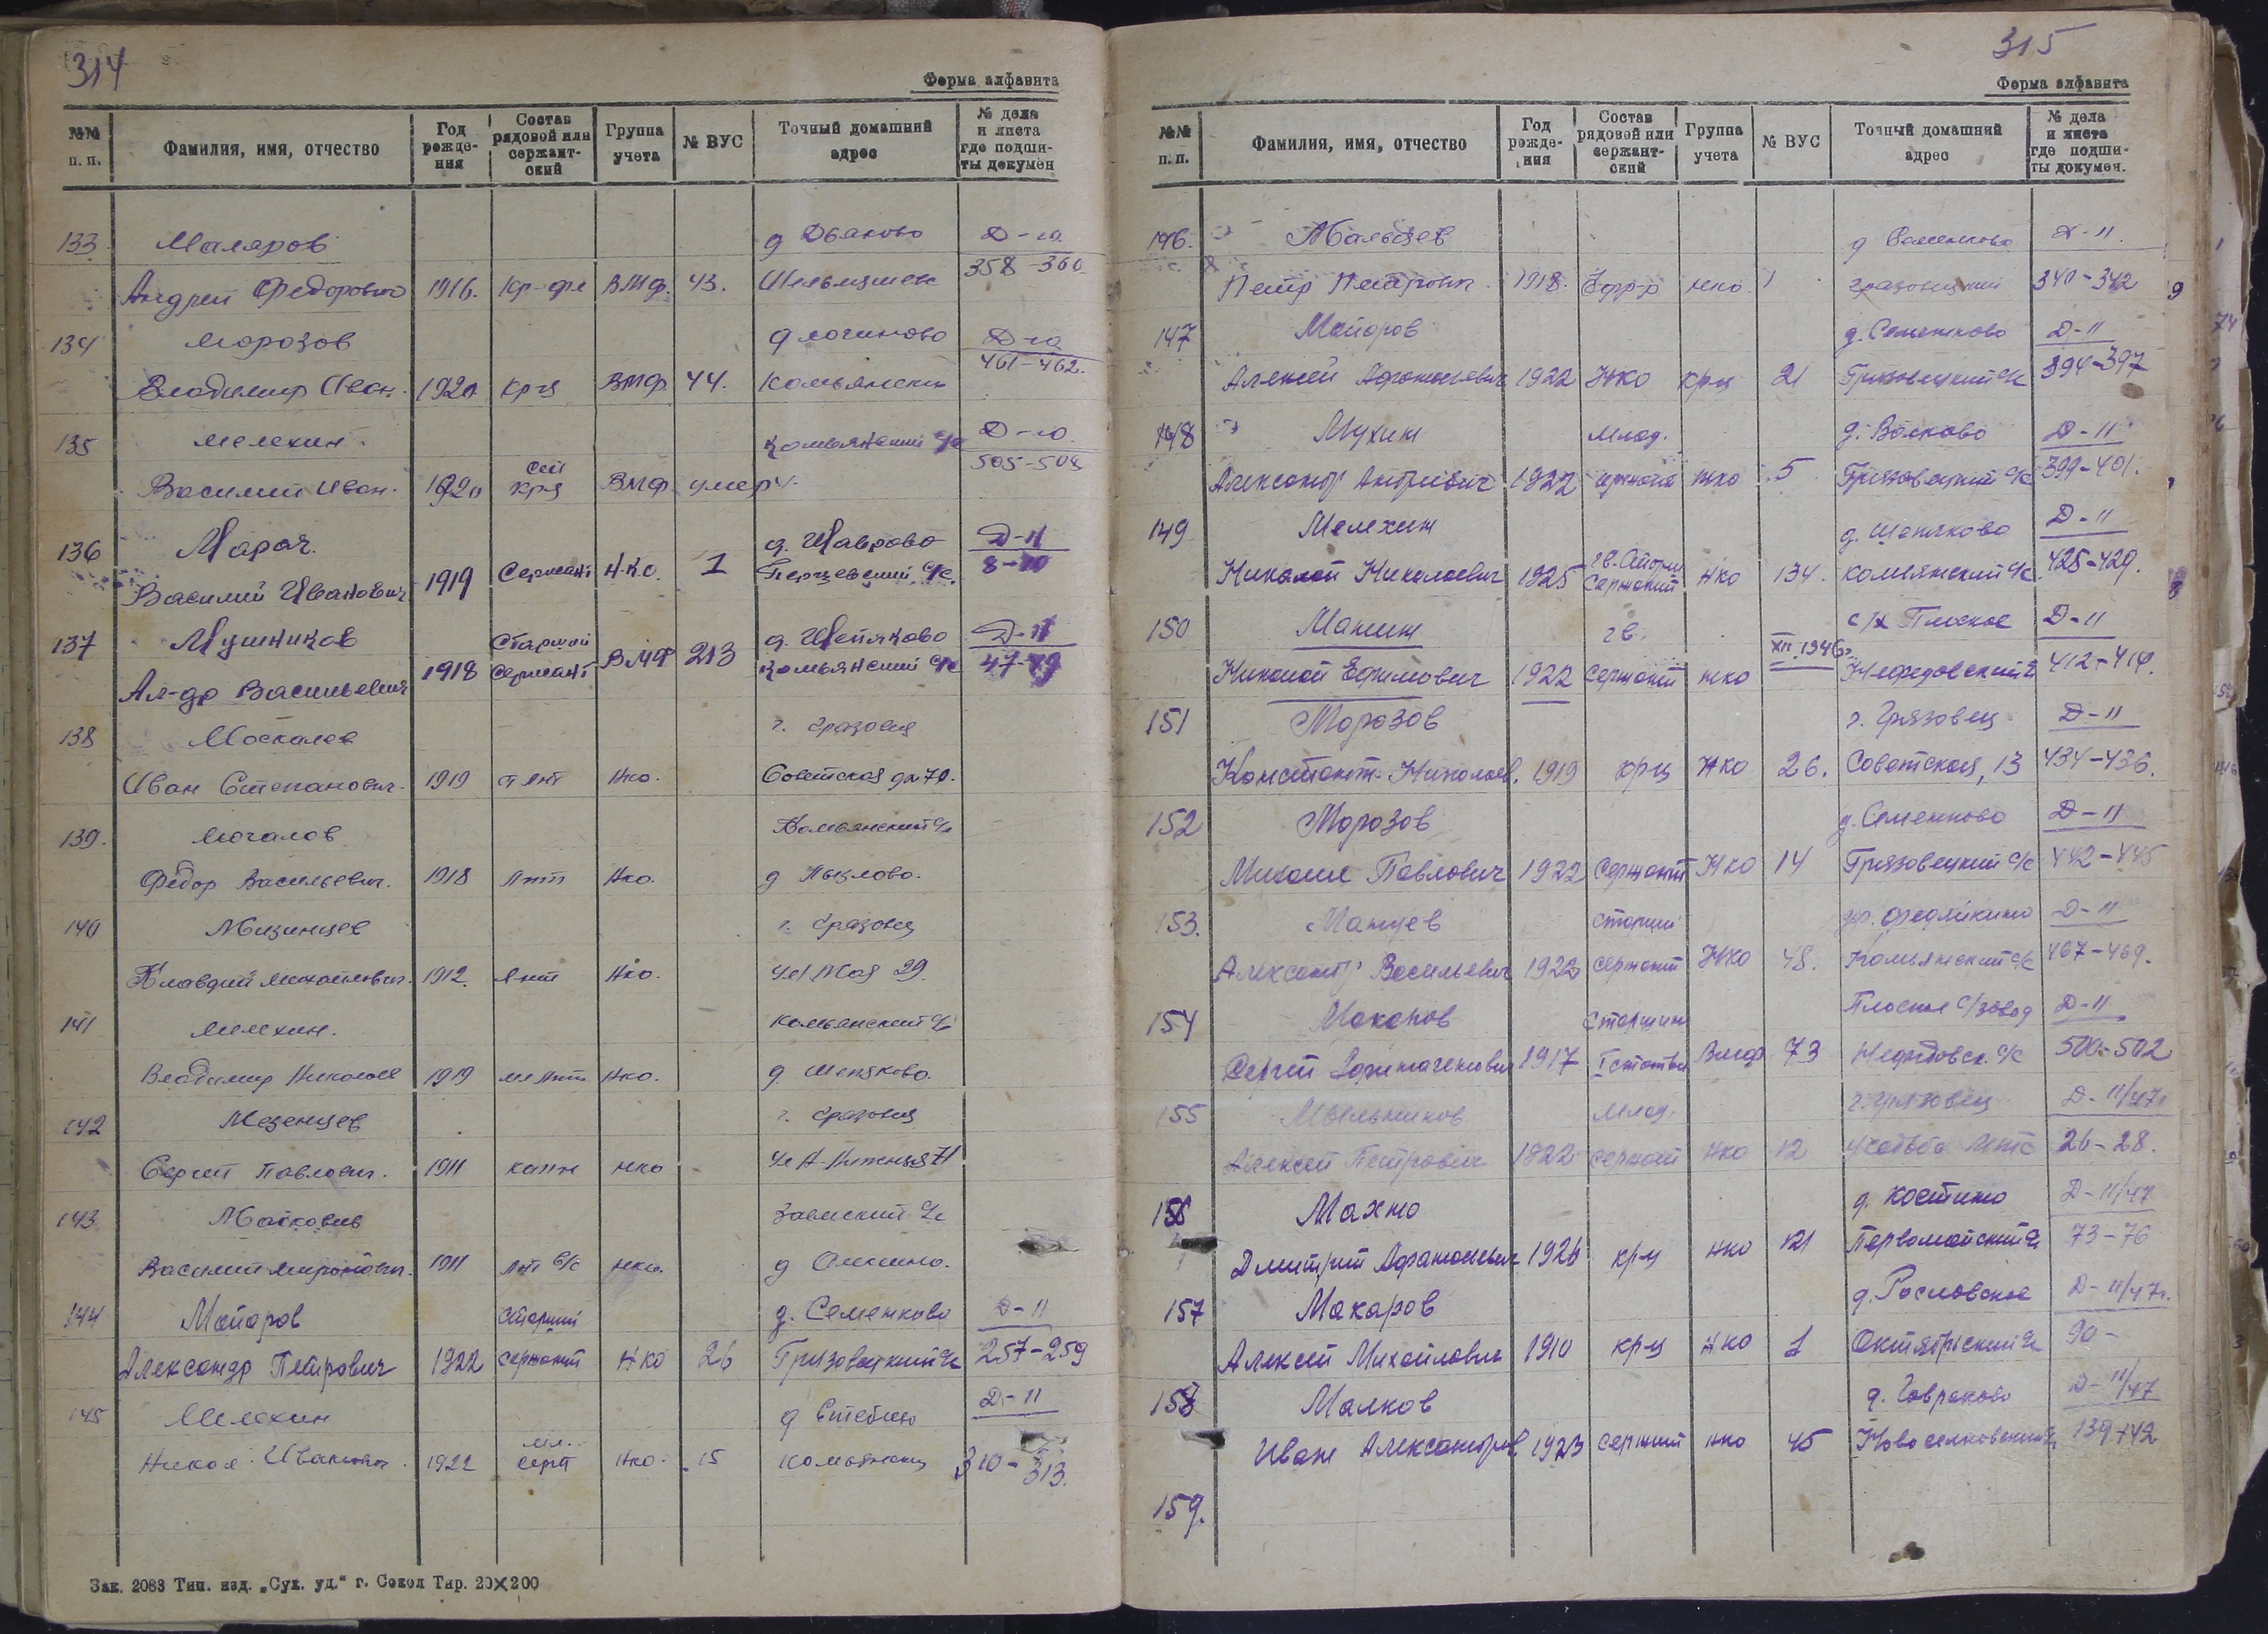 314
Форма алфавита
№№ п. п. Фамилия, имя, отчество Год рождения Состав рядовой или сержантский Группа учета № ВУС Точный домашний адрес № дела и листа где подшиты докумен
133. Маляров д Дьяково Д-10.
Андрей Федорович 1916. Кр-фл ВМФ. 43. 358-360
134 Морозов д Логиново Д-10
Владимир Иван. 1920 Кр-ц ВМФ 44. Комьянский 461-462.
135 Мелехин. Комьянский с/с Д-10.
Василий Иван. 1920 кр-ц ВМФ умер. 505-508
136 Марач. д. Лаврово Д-11
Василий Иванович 1919 Сержант Н.К.О. 1 Перцевский с/с. 8-10
137 Мушников Старший д. Щепяково Д-11
Ал-др Васильевич 1918 Сержант ВМФ 213 Комьянский с/с 47-49
138 Москалев г. Грязовец
Иван Степанович. 1919 ст лнт Нко. Советская дм 70.
139. Мочалов Комьянский с/с
Федор Васильевич. 1918 лнт Нко. д Пыхлово.
140 Мизинцев г. Грязовец
Клавдий Михайлович. 1912. лнт Нко. Ул 1 Мая 29.
141 Мелехин. Комьянский с/с
Владимир Николаев 1919 мл лнт Нко. д Щепяково.
142 Мезенцев г. Грязовец
Сергей Павлович. 1911 капн нко
143 Майков
Василий Миронович. 1911 лнт а/с нко. д Алексино.
144 Майоров Старший д. Семенково Д-11
Александр Петрович 1922 сержант НКО 26 Грязовецкий с/с 257-259
145 Мелехин д Стеблево Д-11
Никол. Иванович. 1922 мл. серт Нко. 15 Комьянский 310-313.
Зак. 2083 Тип. изд. „Сух. уд.“ г. Сокол Тир. 20×200
315
Форма алфавита
№№ п. п. Фамилия, имя, отчество Год рождения Состав рядовой или сержантский Группа учета № ВУС Точный домашний адрес № дела и листа где подшиты докумен.
146. Мальцев д Семенково Д-11
Петр Петрович. 1918. Ефр-р нко 1 Грязовецкий 340-342
147 Майоров д. Семенково Д-11
Алексей Афанасьевич 1922 НКО кр-ц 21 Грязовецкий с/с 394-397
148 Мухин Млад. д. Волково Д-11
Александр Андреевич 1922 сержант нко 5 Грязовецкий с/с 399-401.
149 Мелехин д. Щепяково Д-11
Николай Николаевич 1925 гв. Старш Сержант Нко 134. Комьянский с/с 425-429.
150 Манин гв. с/х Плоское Д-11
Николай Ефимович 1922 Сержант нко XII.1946г. Нефедовский с 412-414.
151 Морозов г. Грязовец Д-11
Константн. Николаев. 1919 кр-ц НКО 26. Советская, 13 434-436.
152 Морозов д. Семенково Д-11
Михаил Павлович 1922 Сержант НКО 14 Грязовецкий с/с 442-445
153. Манцев старший др. Федяйкино Д-11
Александр Васильевич 1922 сержант НКО 48. Комьянский с/с 467-469.
154 Маканов Старшина Плоское с/завод Д-11
Сергей 1917 I статьи Вмф 73 Нефедовск. с/с 500-502
155 Мыльников Млад. г. Грязовец Д-11/47г
Алексей Петрович 1922 сержант Нко 12 усадьба МТС 26-28.
156 Махно д. Костино Д-11/47
Дмитрий Афанасьевич 1926 кр-ц нко 121 Первомайский с/с 73-76
157 Макаров д. Рословское Д-11/47г.
Алексей Михайлович 1910 кр-ц НКО 1 Октябрьский с/с 90-
158 Малков д. Гавраково Д-11/47
Иван Александров 1923 сержант нко 45 Новоселковский 139-142
159.